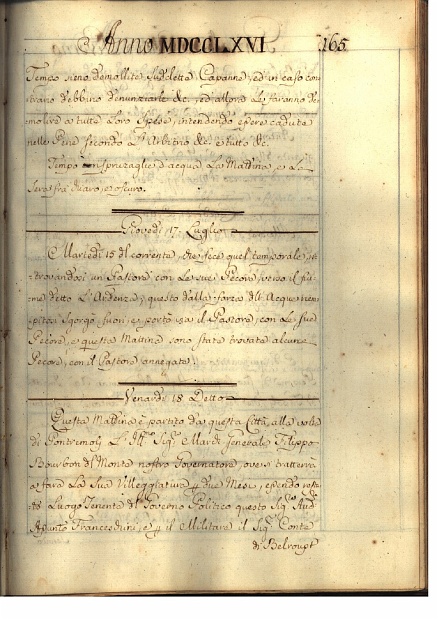 Anno MDCCLXVI 165
Tempo sieno demolite sudette Capanne, ed in caso con
trario debbino denunziarle &c. ed allora le faranno de
molire a tutte Loro Spese, intendendo essere caduti
nelle Pene secondo L'Arbitrio &c. e tutto &c.
Tempo con spruzaglie d'acqua La Mattina, e La
Sera frà chiaro, e scuro.
Giovedi 17. Luglio
Martedi 15 del corrente, che fece quel temporale, ri
trovandosi un Pastore con Le sue Pecore verso il fiu
me detto L'Ardenza, questo dalla forza dell'Acque
sgorgò fuori, e portò via il Pastore, con Le sue
Pecore, e questa Mattina sono state trovate alcune
Pecore, con il Pastore annegate.
Venardi 18. Detto
Questa Mattina è partito da questa Città alla volta
di Pontremoli L' Ill.mo Sig.r Mar. Generale Filippo
Bourbon del Monte nostro Governatore, ove si tratterrà
e farà La Sua Villeggiatura p due Mesi, essendo resta
Luogo Tenente del Governo Politico questo Sig.r Aud.
Franceschini, e p il Militare il Sig.r Conte
di Belroupt